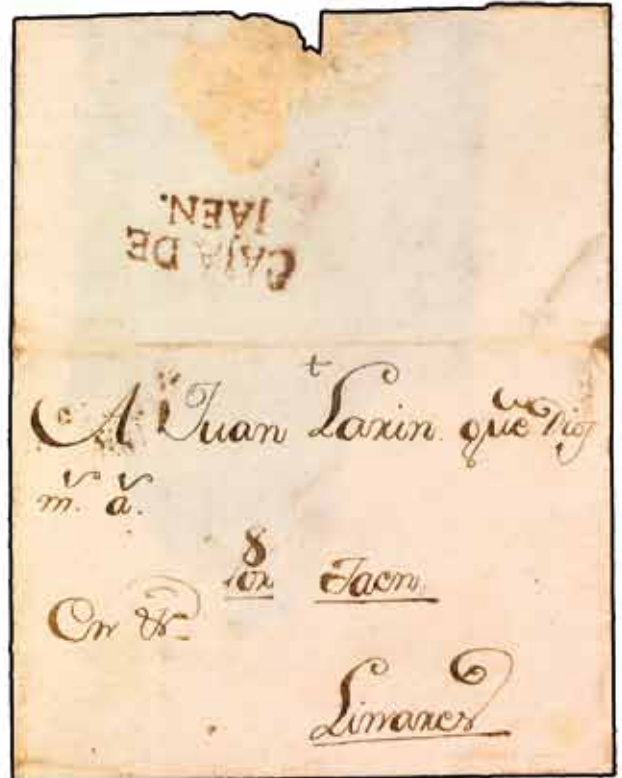 CAJA DE
JAEN.
t
A Juan Laxin que Dios
m.s a.s
8
Por Jaen.
En
Linares